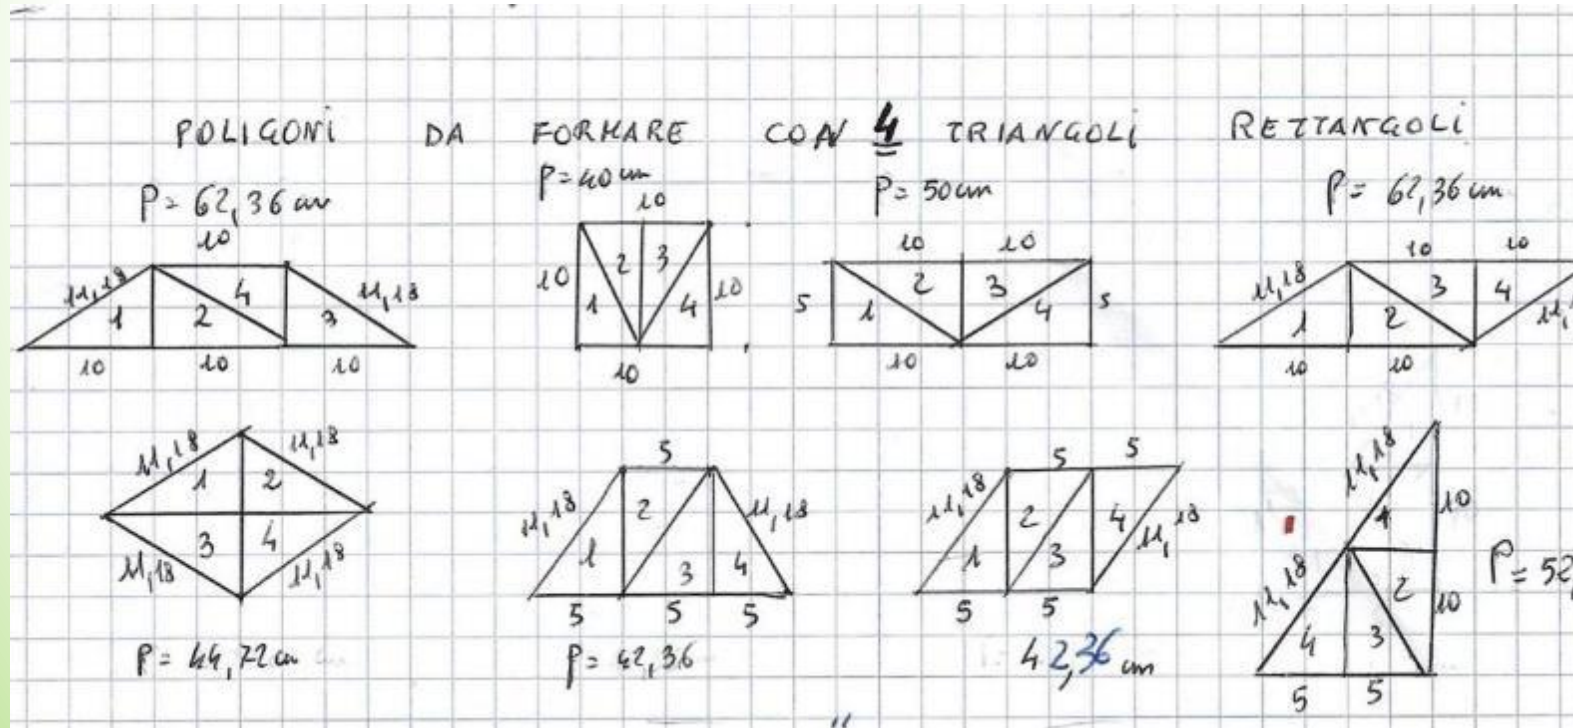 POLIGONI DA FORMARE CON 4 TRIANGOLI RETTANGOLI
P= 62,36 cm
10
11,18
11,18
1
2
4
3
10
10
10
P=40 cm
10
10
10
1
2
3
4
10
P= 50cm
10
10
5
5
1
2
3
4
10
10
P= 62,36 cm
10
10
11,18
1
2
3
4
10
10
11,18
11,18
1
2
3
4
11,18
11,18
P= 44,72 cm
5
11,18
11,18
1
2
3
4
5
5
5
P= 42,36
5
5
11,18
11,18
1
2
3
4
5
5
42,36 cm
11,18
10
1
11,18
2
10
4
3
5
5
P= 52,